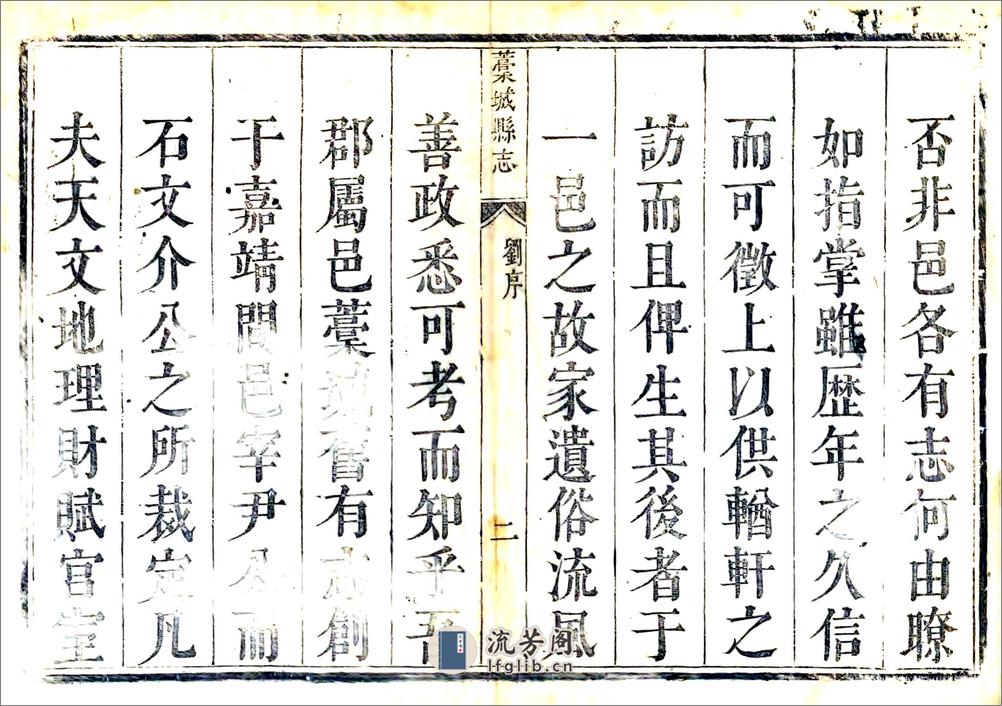 否非邑各有志何由瞭
如指掌雖歷年之久信
而可徵上以供輶軒之
訪而且俾生其後者于
一邑之故家遺俗流風
藁城縣志
劉序
二
善政悉可考而知乎吾
郡屬邑藁城舊有志創
于嘉靖間邑宰尹公而
石文介公之所裁定凡
夫天文地理財賦官室
流芳阁
lfglib.cn